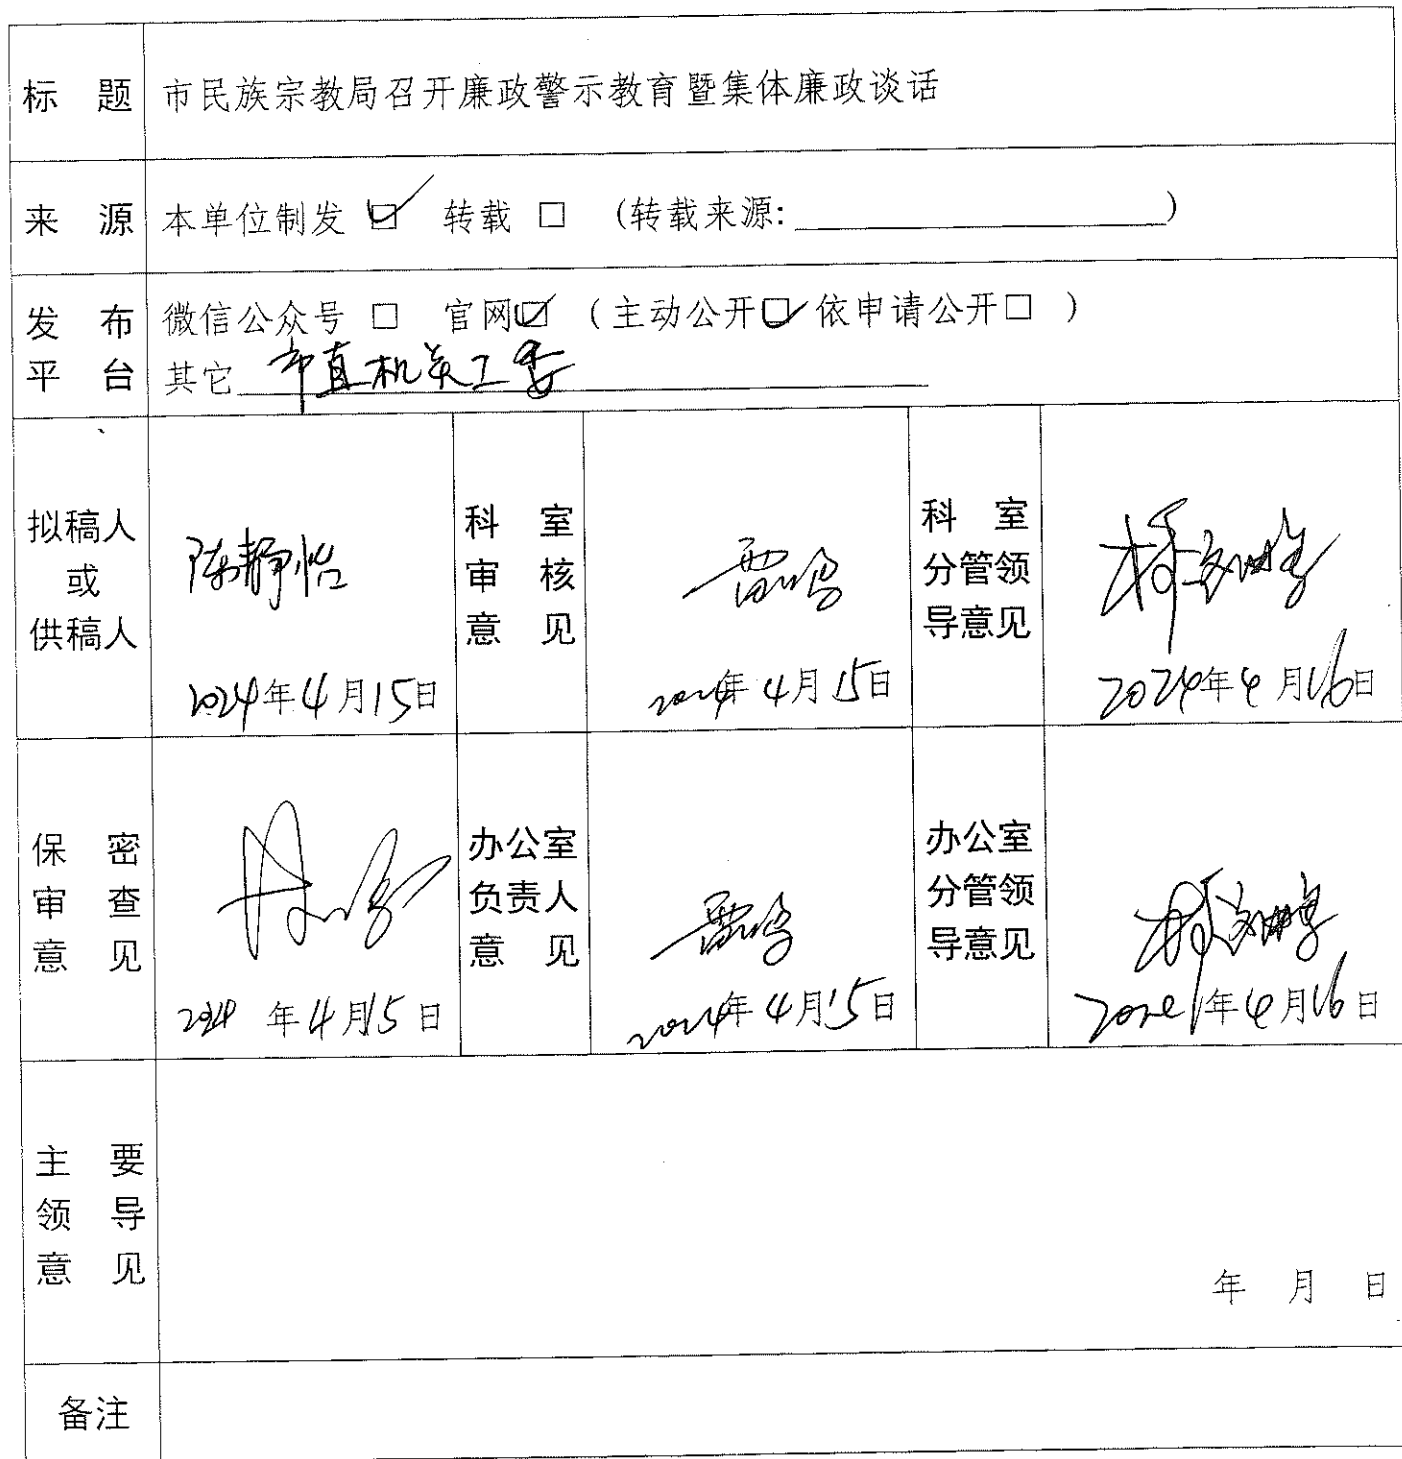 标 题 市民族宗教局召开廉政警示教育暨集体廉政谈话
来 源 本单位制发 ☑ 转载 □ (转载来源:____________)
发 布 微信公众号 □ 官网☑ (主动公开☑依申请公开□ )
平 台 其它 市直机关工委
拟稿人
或
供稿人
陈静怡
2024年4月15日
科 室
审 核
意 见
雷鸣
2024年4月15日
科 室
分管领
导意见
2024年4月16日
保 密
审 查
意 见
2024年4月15日
办公室
负责人
意 见
雷鸣
2024年4月15日
办公室
分管领
导意见
2024年4月16日
主 要
领 导
意 见
年 月 日
备注